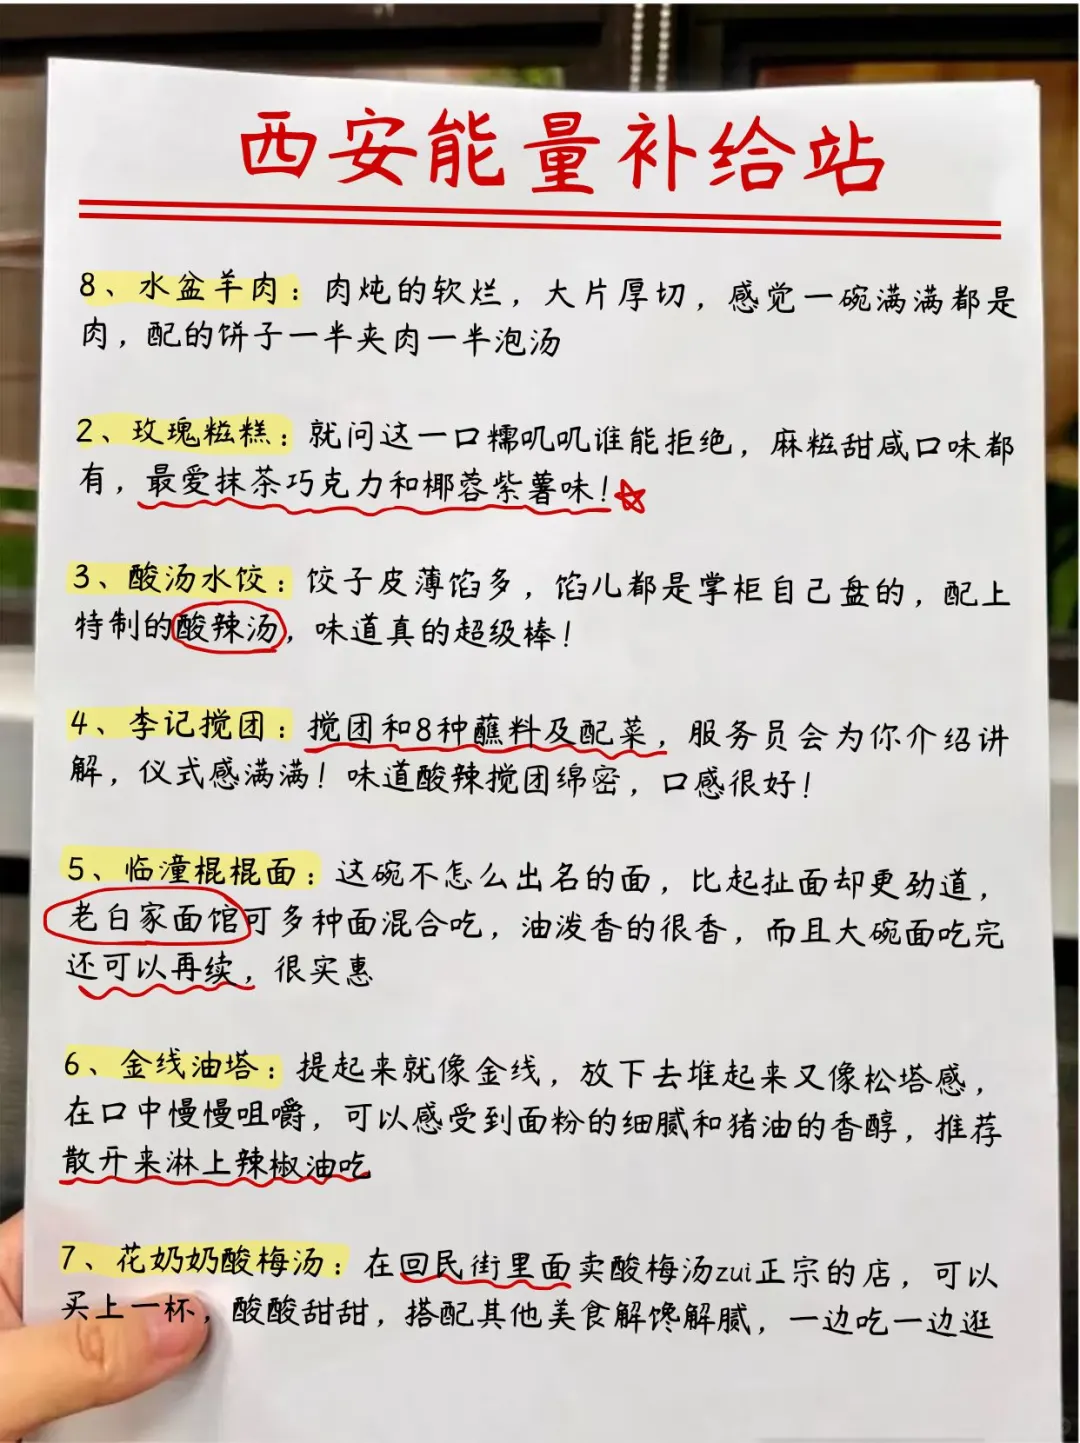 西安能量补给站
8、水盆羊肉：肉炖的软烂，大片厚切，感觉一碗满满都是
肉，配的饼子一半夹肉一半泡汤
2、玫瑰粒糕：就问这一口糯叽叽谁能拒绝，麻粒甜咸口味都
有，最爱抹茶巧克力和椰蓉紫薯味！
3、酸汤水饺：饺子皮薄馅多，馅儿都是掌柜自己盘的，配上
特制的酸辣汤，味道真的超级棒！
4、李记搅团：搅团和8种蘸料及配菜，服务员会为你介绍讲
解，仪式感满满！味道酸辣搅团绵密，口感很好！
5、临潼棍棍面：这碗不怎么出名的面，比起扯面却更劲道，
老白家面馆可多种面混合吃，油泼香的很香，而且大碗面吃完
还可以再续，很实惠
6、金线油塔：提起来就像金线，放下去堆起来又像松塔感，
在口中慢慢咀嚼，可以感受到面粉的细腻和猪油的香醇，推荐
散开来淋上辣椒油吃
7、花奶奶酸梅汤：在回民街里面卖酸梅汤zui正宗的店，可以
买上一杯，酸酸甜甜，搭配其他美食解馋解腻，一边吃一边逛